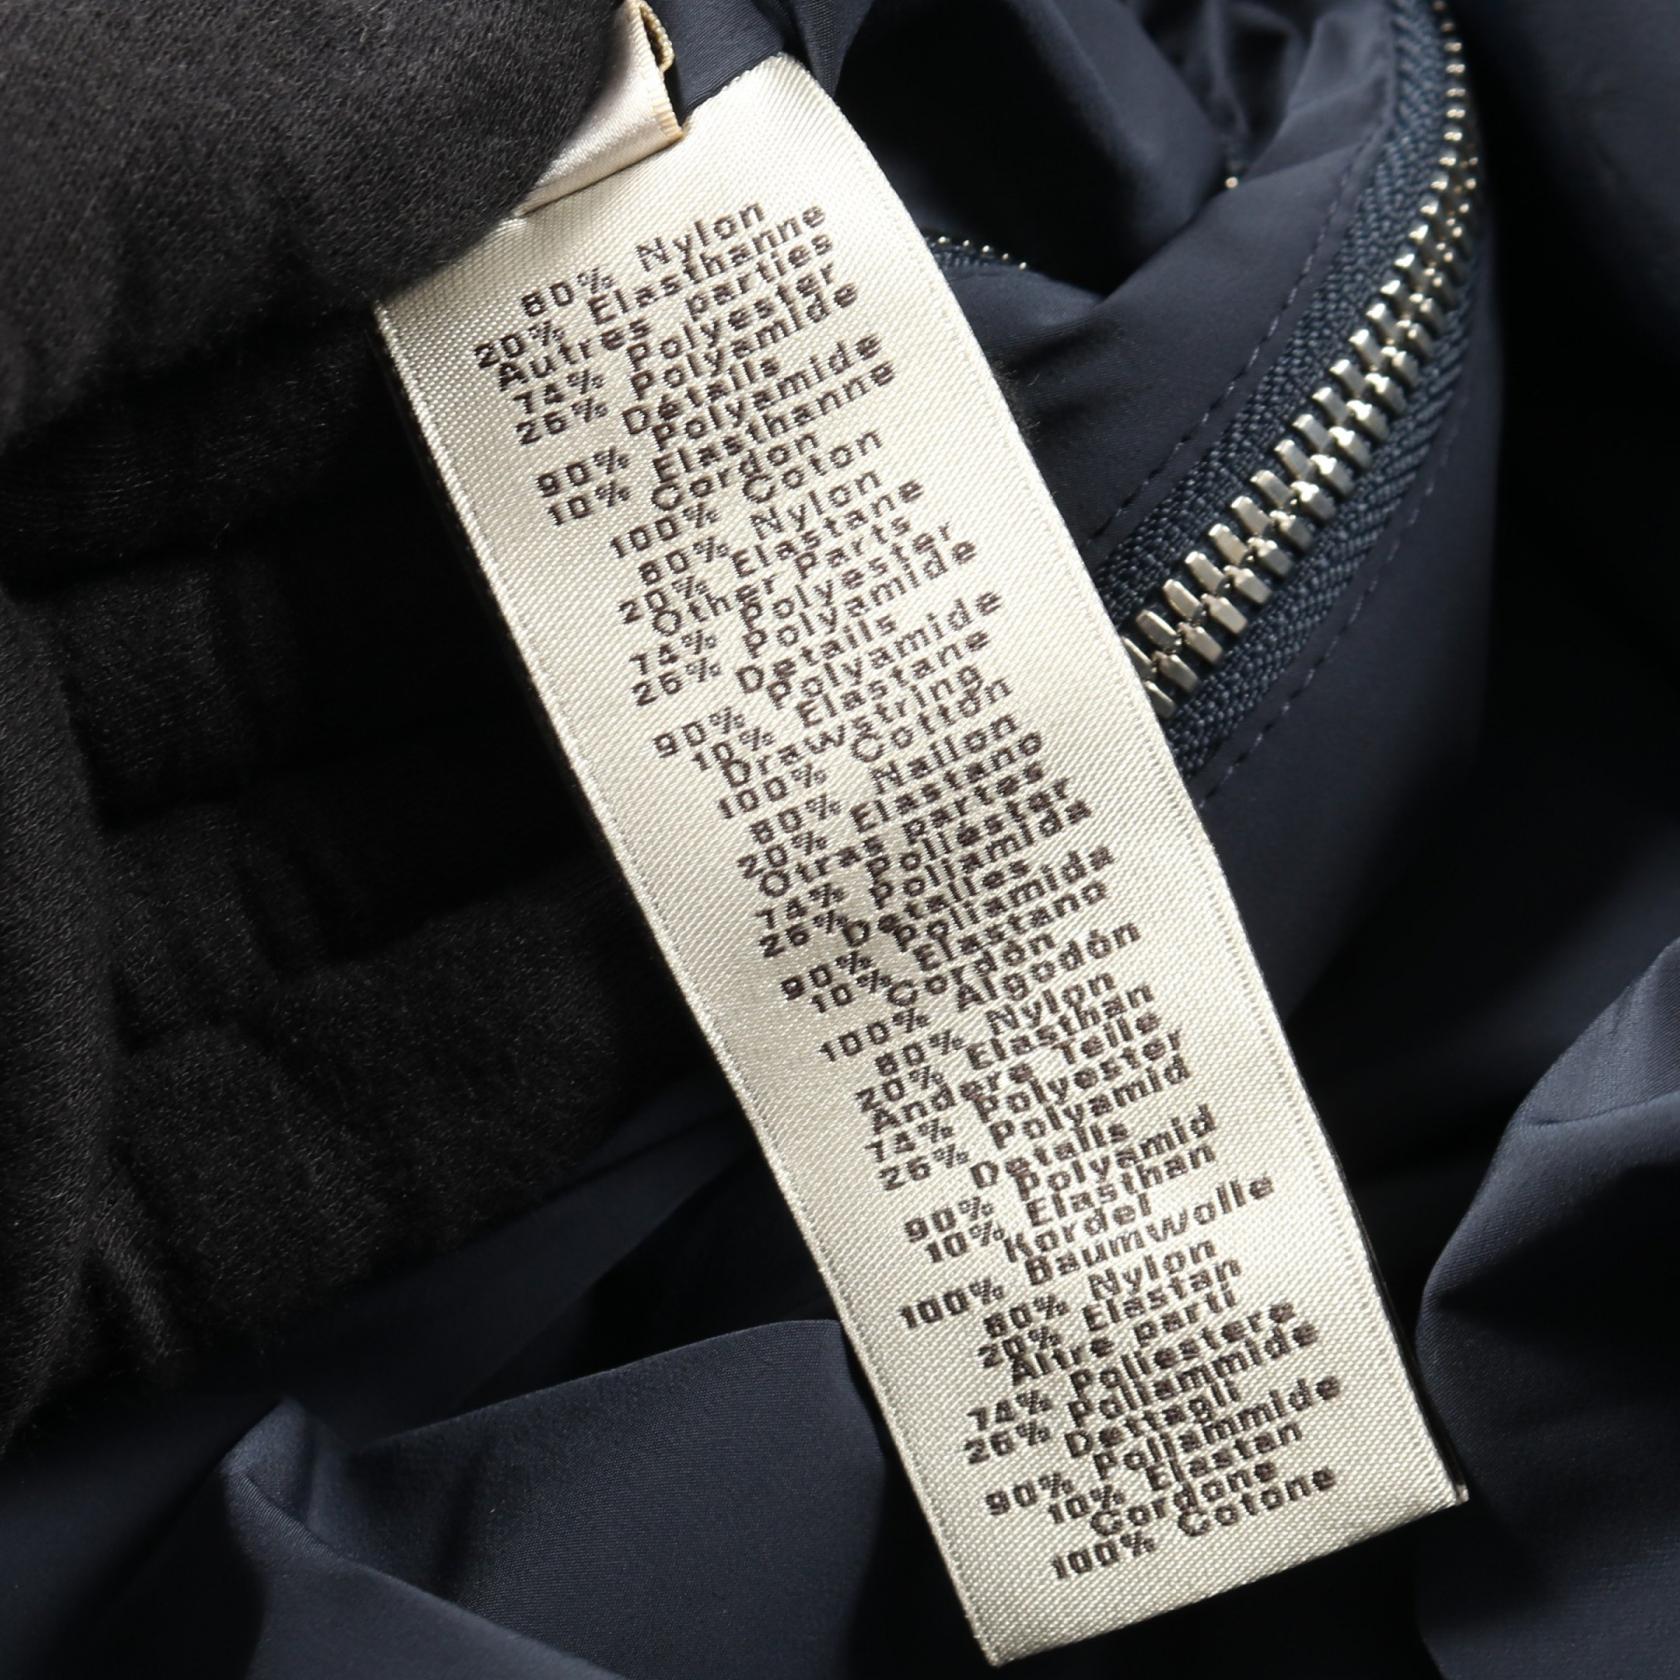 80% Nylon
20% Elasthanne
Autres parties
74% Polyester
26% Polyamide
Détails
90% Polyamide
10% Elasthanne
Cordon
100% Coton
80% Nylon
20% Elastane
Other Parts
74% Polyester
26% Polyamide
Details
90% Polyamide
10% Elastane
Drawstring
100% Cotton
80% Nailon
20% Elastano
Otras Partes
74% Poliéstar
26% Poliamida
Detalles
90% Poliamida
10% Elastano
Cordón
100% Algodón
80% Nylon
20% Elasthan
Andere Teile
74% Polyester
26% Polyamid
Details
90% Polyamid
10% Elasthan
Kordel
100% Baumwolle
80% Nylon
20% Elastan
Altre parti
74% Poliestere
26% Poliammide
Dettagli
90% Poliammide
10% Elastan
Cordone
100% Cotone